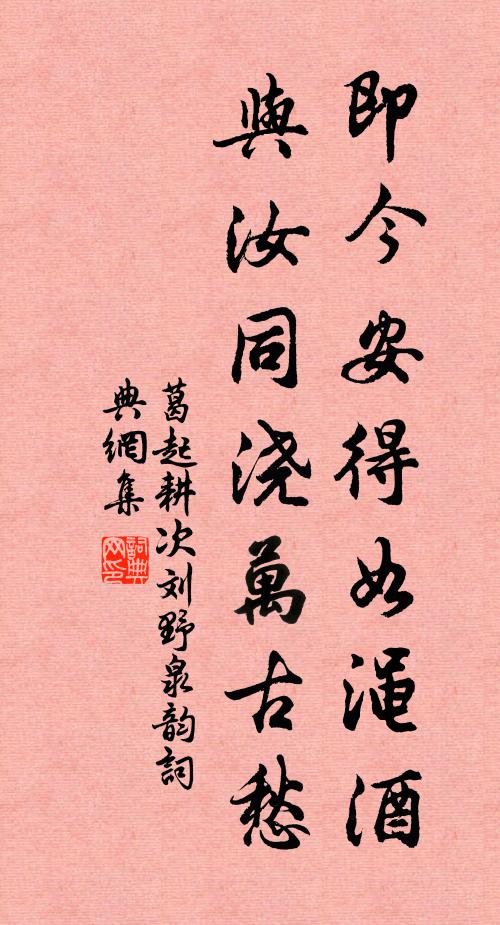 即今安得如渑酒
與汝同浇萬古愁
葛起耕次刘野泉韵詞
典網集
詞典
网印